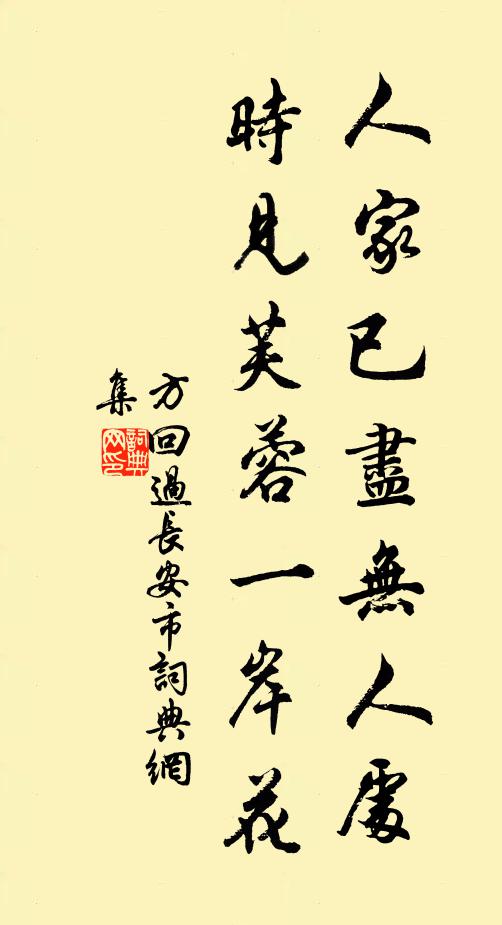 人家已盡無人處
時見芙蓉一岸花
方回過長安市詞典網
集
詞典網印